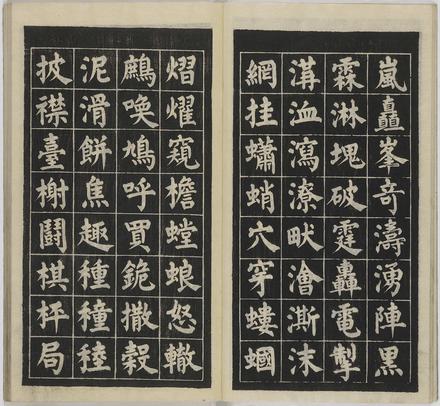 嵐矗峯奇濤湧陣黒
霖淋塊破霆轟電掣
溝洫瀉潦畎澮澌沫
網挂蠨蛸穴穿螻蟈
熠燿窺檐螳蜋怒轍
喚鳩呼買撒穀
泥滑餅焦趣種穜稑
披襟臺榭鬪棋枰局